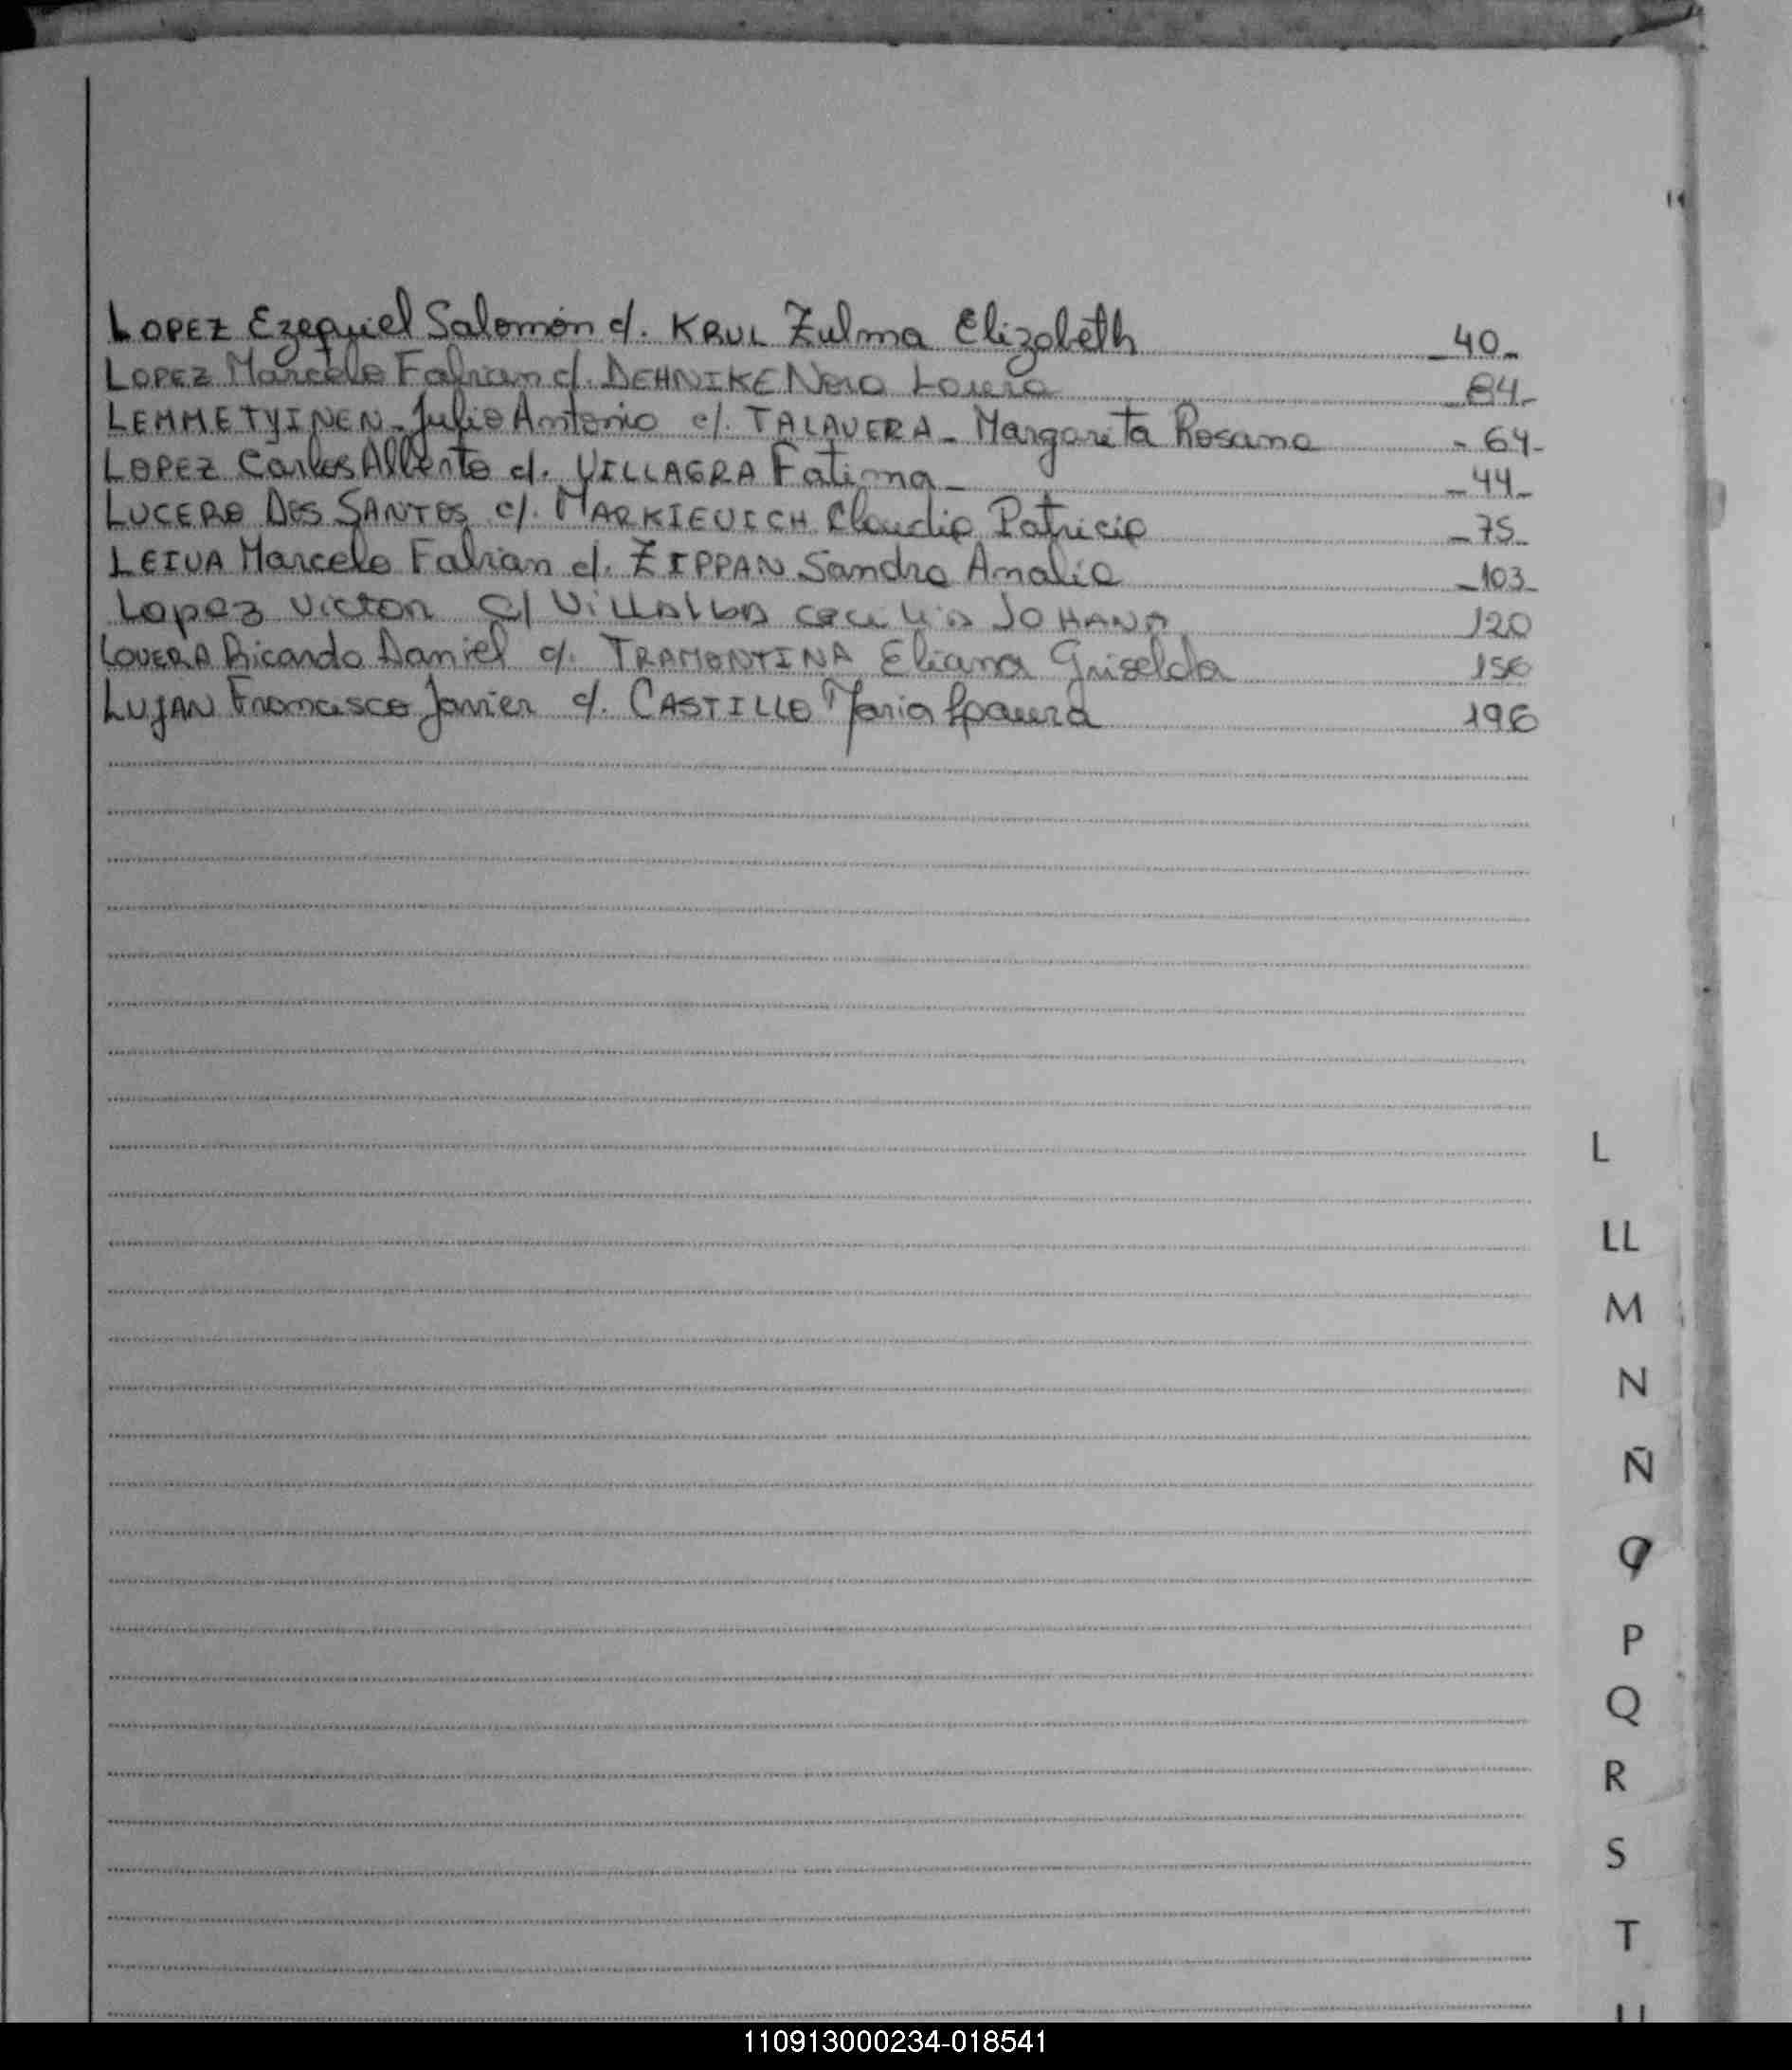 LOPEZ Ezequiel Salomón c/. KRUL Zulma Elizabeth 40_
LOPEZ Marcelo Fabian c/. DEHNIKE Laura 84_
LEMMETYINEN_Julio Antonio c/. TALAVERA_ Margarita Rosana - 64-
LOPEZ Carlos Alberto c/. VILLAGRA Fatima_ _44_
LUCERO DOS SANTOS c/. MARKIEVICH Claudia Patricia _75_
LEIVA Marcelo Fabian c/. ZIPPAN Sandra Amalia _103_
Lopez Victor c/ Villalba cecilia JOHANA 120
LOVERA Ricardo Daniel c/. TRAMONTINA Eliana Griselda 156
LUJAN Francisco Javier c/. CASTILLO Maria Laura 196
L
LL
M
N
Ñ
O
P
Q
R
S
T
U
110913000234-018541